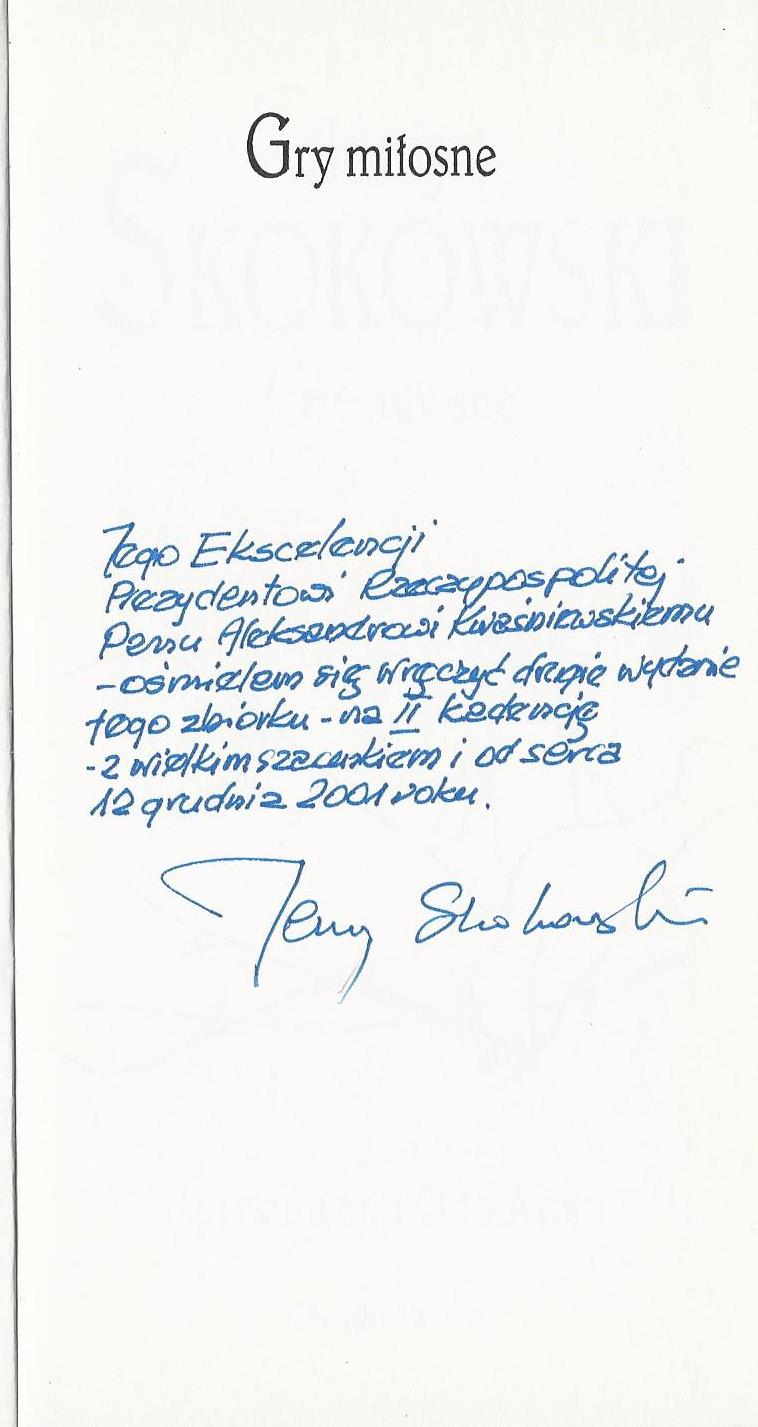 Gry miłosne
SKOKOWSKI
Gry miłosne
Jego Ekscelencji
Prezydentowi Rzeczypospolitej
Panu Aleksandrowi Kwaśniewskiemu
- ośmielam się wręczyć drugie wydanie
tego zbiorku - na II kadencję
- z wielkim szacunkiem i od serca
12 grudnia 2001 roku.
Jerzy Skokowski